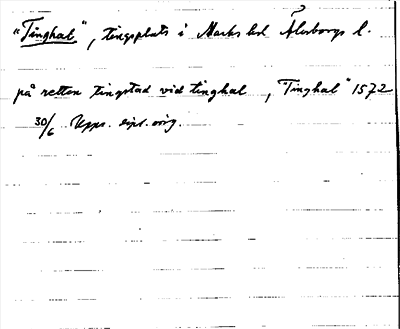 "Tinghal", tingsplats i Marks hd Älvsborgs l.
på retten tingstad vid tinghal, "Tinghal" 1572
30/6 Upps. dipl. orig.